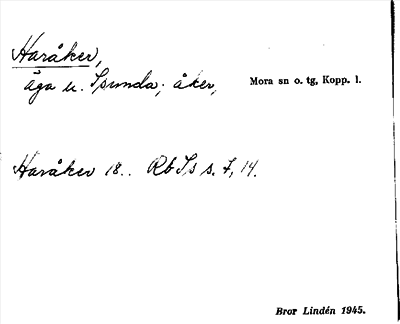 Haråker,
äga u. Spunda; åker, Mora sn o. tg, Kopp. l.
Haråker 18.. Rb Ss s. 7, 14.
Bror Lindén 1945.